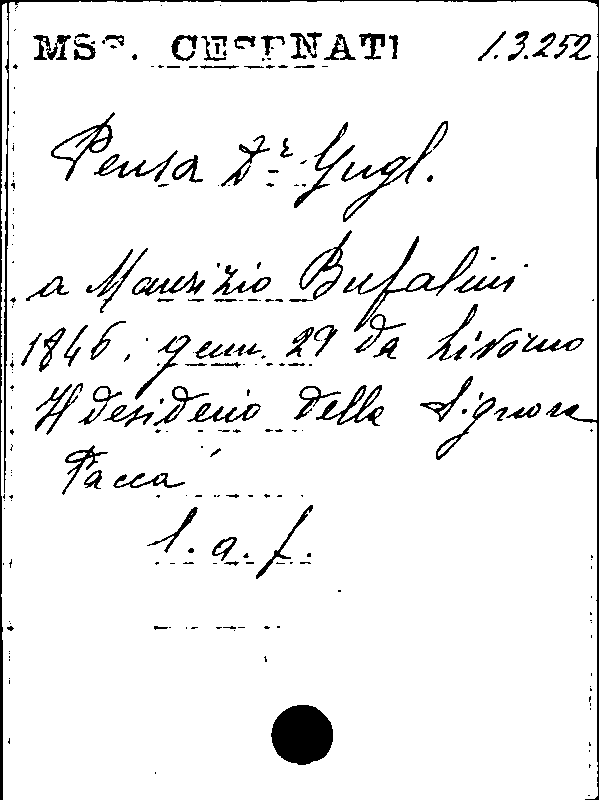 MSS. CESENATI 1.3.252
Pensa Dr Gugl.
a Maurizio Bufalini
1846, genn. 29 da Livorno
Il desiderio della Signora
Pacca
l. a. f.